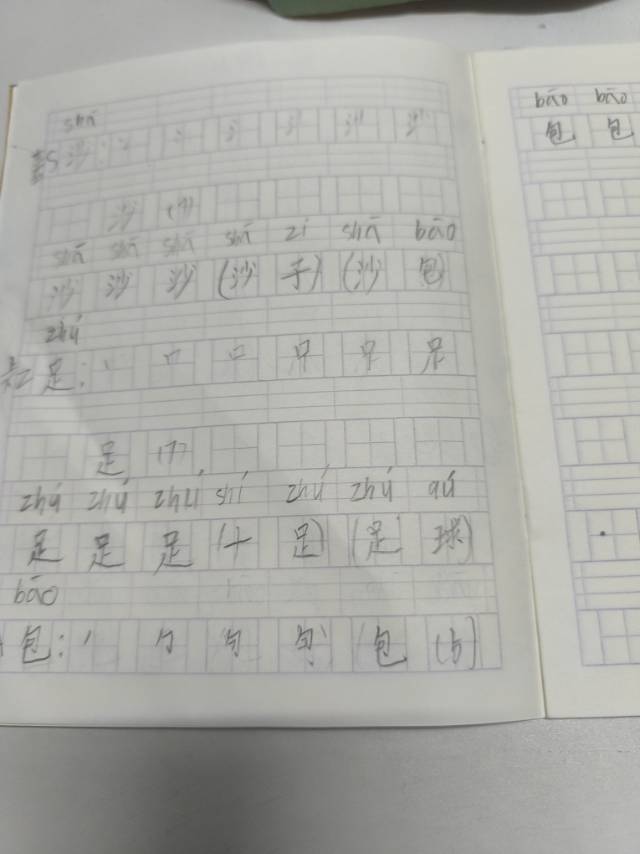 shā
沙:
沙 (7)
shā shā shā shā zi shā bāo
沙 沙 沙 (沙 子) (沙 包)
zhú
足: 丶 口 口 足
足 (7)
zhú zhú zhú shí zhú zhú qú
足 足 足 (十 足) (足 球)
bāo
包: 丿 勹 勹 包 (5)
bāo bāo
包 包